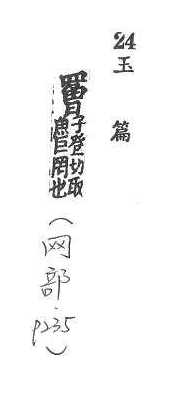 24 玉篇
罾 子登切取
魚巨罔也
(网部.p235)